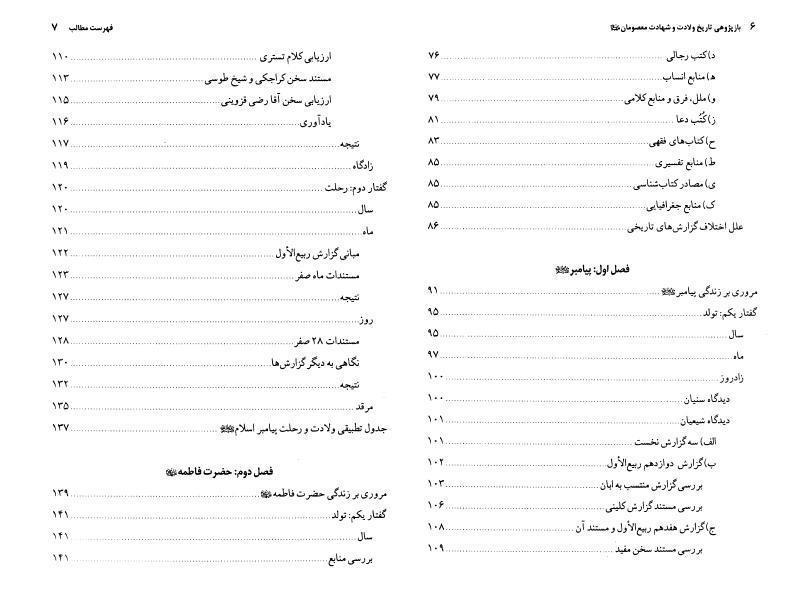 ۶ بازپژوهی تاریخ ولادت و شهادت معصومان
د) کتب رجالی ........ ۷۶
ه) منابع انساب ........ ۷۷
و) ملل، فرق و منابع کلامی ........ ۷۹
ز) کُتُب دعا ........ ۸۱
ح) کتاب‌های فقهی ........ ۸۳
ط) منابع تفسیری ........ ۸۵
ی) مصادر کتاب‌شناسی ........ ۸۵
ک) منابع جغرافیایی ........ ۸۵
علل اختلاف گزارش‌های تاریخی ........ ۸۶
فصل اول: پیامبر ﷺ
مروری بر زندگی پیامبر ﷺ ........ ۹۱
گفتار یکم: تولد ........ ۹۵
سال ........ ۹۵
ماه ........ ۹۷
زادروز ........ ۱۰۰
دیدگاه سنیان ........ ۱۰۰
دیدگاه شیعیان ........ ۱۰۱
الف) سه گزارش نخست ........ ۱۰۱
ب) گزارش دوازدهم ربیع‌الأول ........ ۱۰۲
بررسی گزارش منتسب به ابان ........ ۱۰۳
بررسی مستند گزارش کلینی ........ ۱۰۶
ج) گزارش هفدهم ربیع‌الأول و مستند آن ........ ۱۰۸
بررسی مستند سخن مفید ........ ۱۰۹
فهرست مطالب ۷
ارزیابی کلام تستری ........ ۱۱۰
مستند سخن کراجکی و شیخ طوسی ........ ۱۱۳
ارزیابی سخن آقا رضی قزوینی ........ ۱۱۵
یادآوری ........ ۱۱۶
نتیجه ........ ۱۱۷
زادگاه ........ ۱۱۹
گفتار دوم: رحلت ........ ۱۲۰
سال ........ ۱۲۰
ماه ........ ۱۲۱
مبانی گزارش ربیع‌الأول ........ ۱۲۲
مستندات ماه صفر ........ ۱۲۳
نتیجه ........ ۱۲۷
روز ........ ۱۲۷
مستندات ۲۸ صفر ........ ۱۲۸
نگاهی به دیگر گزارش‌ها ........ ۱۳۰
نتیجه ........ ۱۳۲
مرقد ........ ۱۳۵
جدول تطبیقی ولادت و رحلت پیامبر اسلام ﷺ ........ ۱۳۷
فصل دوم: حضرت فاطمه
مروری بر زندگی حضرت فاطمه ........ ۱۳۹
گفتار یکم: تولد ........ ۱۴۱
سال ........ ۱۴۱
بررسی منابع ........ ۱۴۱